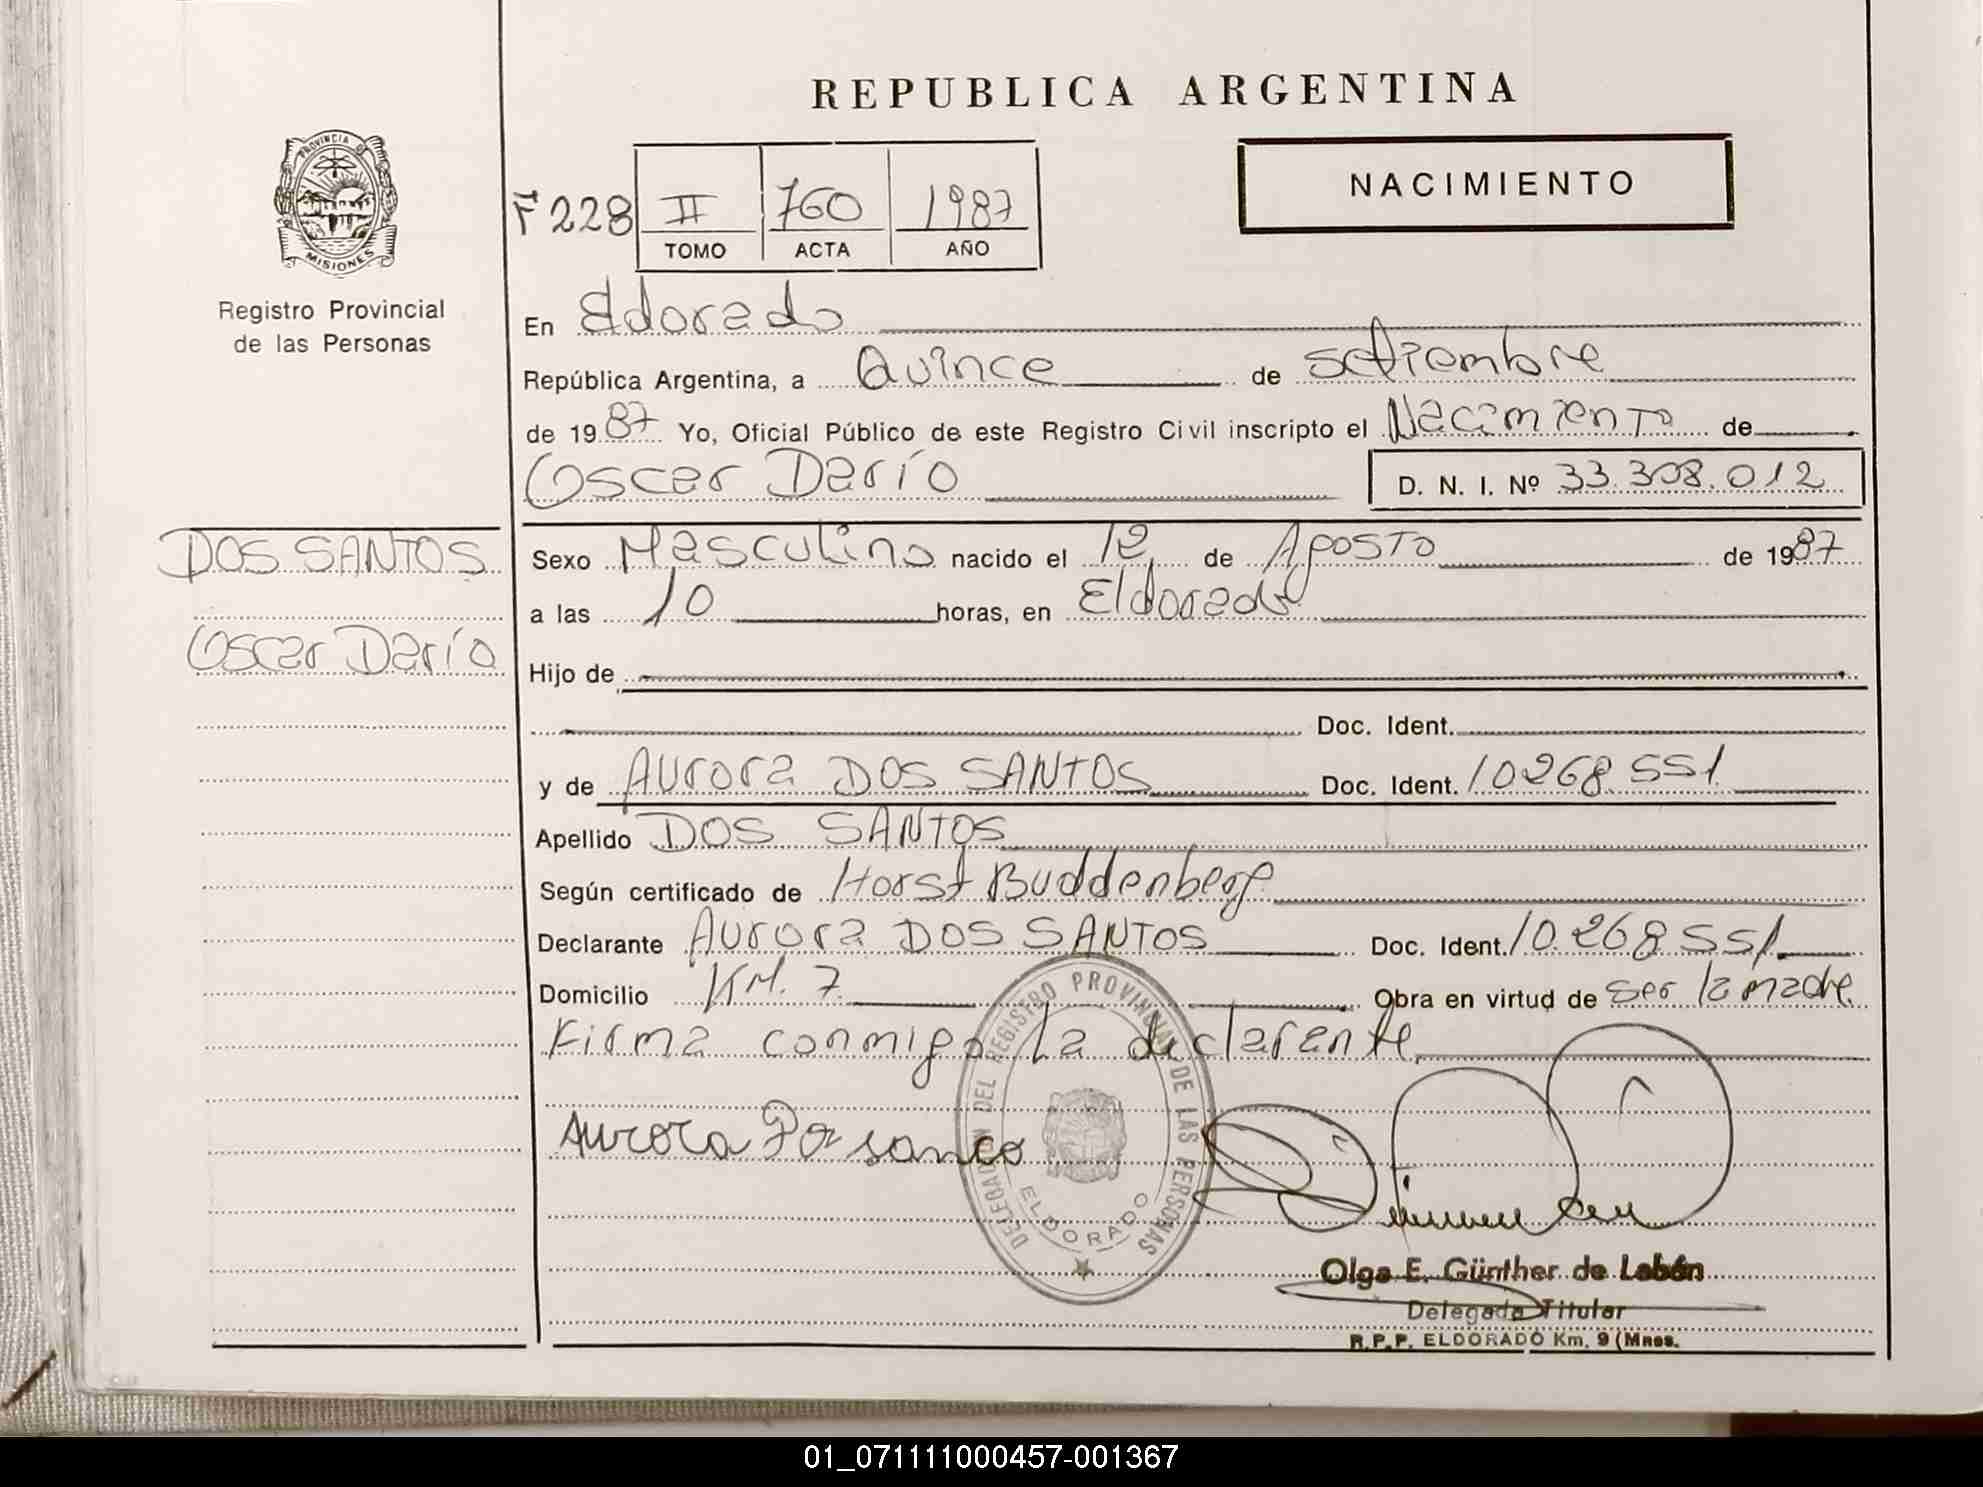 REPUBLICA ARGENTINA
PROVINCIA D
MISIONES
Registro Provincial
de las Personas
NACIMIENTO
F 228 II 760 1987
TOMO ACTA AÑO
En Eldorado
República Argentina, a Quince de setiembre
de 1987 Yo, Oficial Público de este Registro Civil inscripto el Nacimiento de
Oscar Darío D. N. I. Nº 33.308.012
DOS SANTOS
Oscar Darío
Sexo Masculino nacido el 12 de Agosto de 1987
a las 10 horas, en Eldorado
Hijo de
Doc. Ident.
y de Aurora DOS SANTOS Doc. Ident. 10.268.551
Apellido DOS SANTOS
Según certificado de Horst Buddenberg
Declarante Aurora DOS SANTOS Doc. Ident. 10.268.551
Domicilio KM. 7 Obra en virtud de ser la madre
Firma conmigo la declarante
DELEGACION DEL REGISTRO PROVINCIAL DE LAS PERSONAS
ELDORADO
Aurora
Olga E. Günther de Labán
Delegada Titular
R.P.P. ELDORADO Km. 9 (Mnes.
01_071111000457-001367